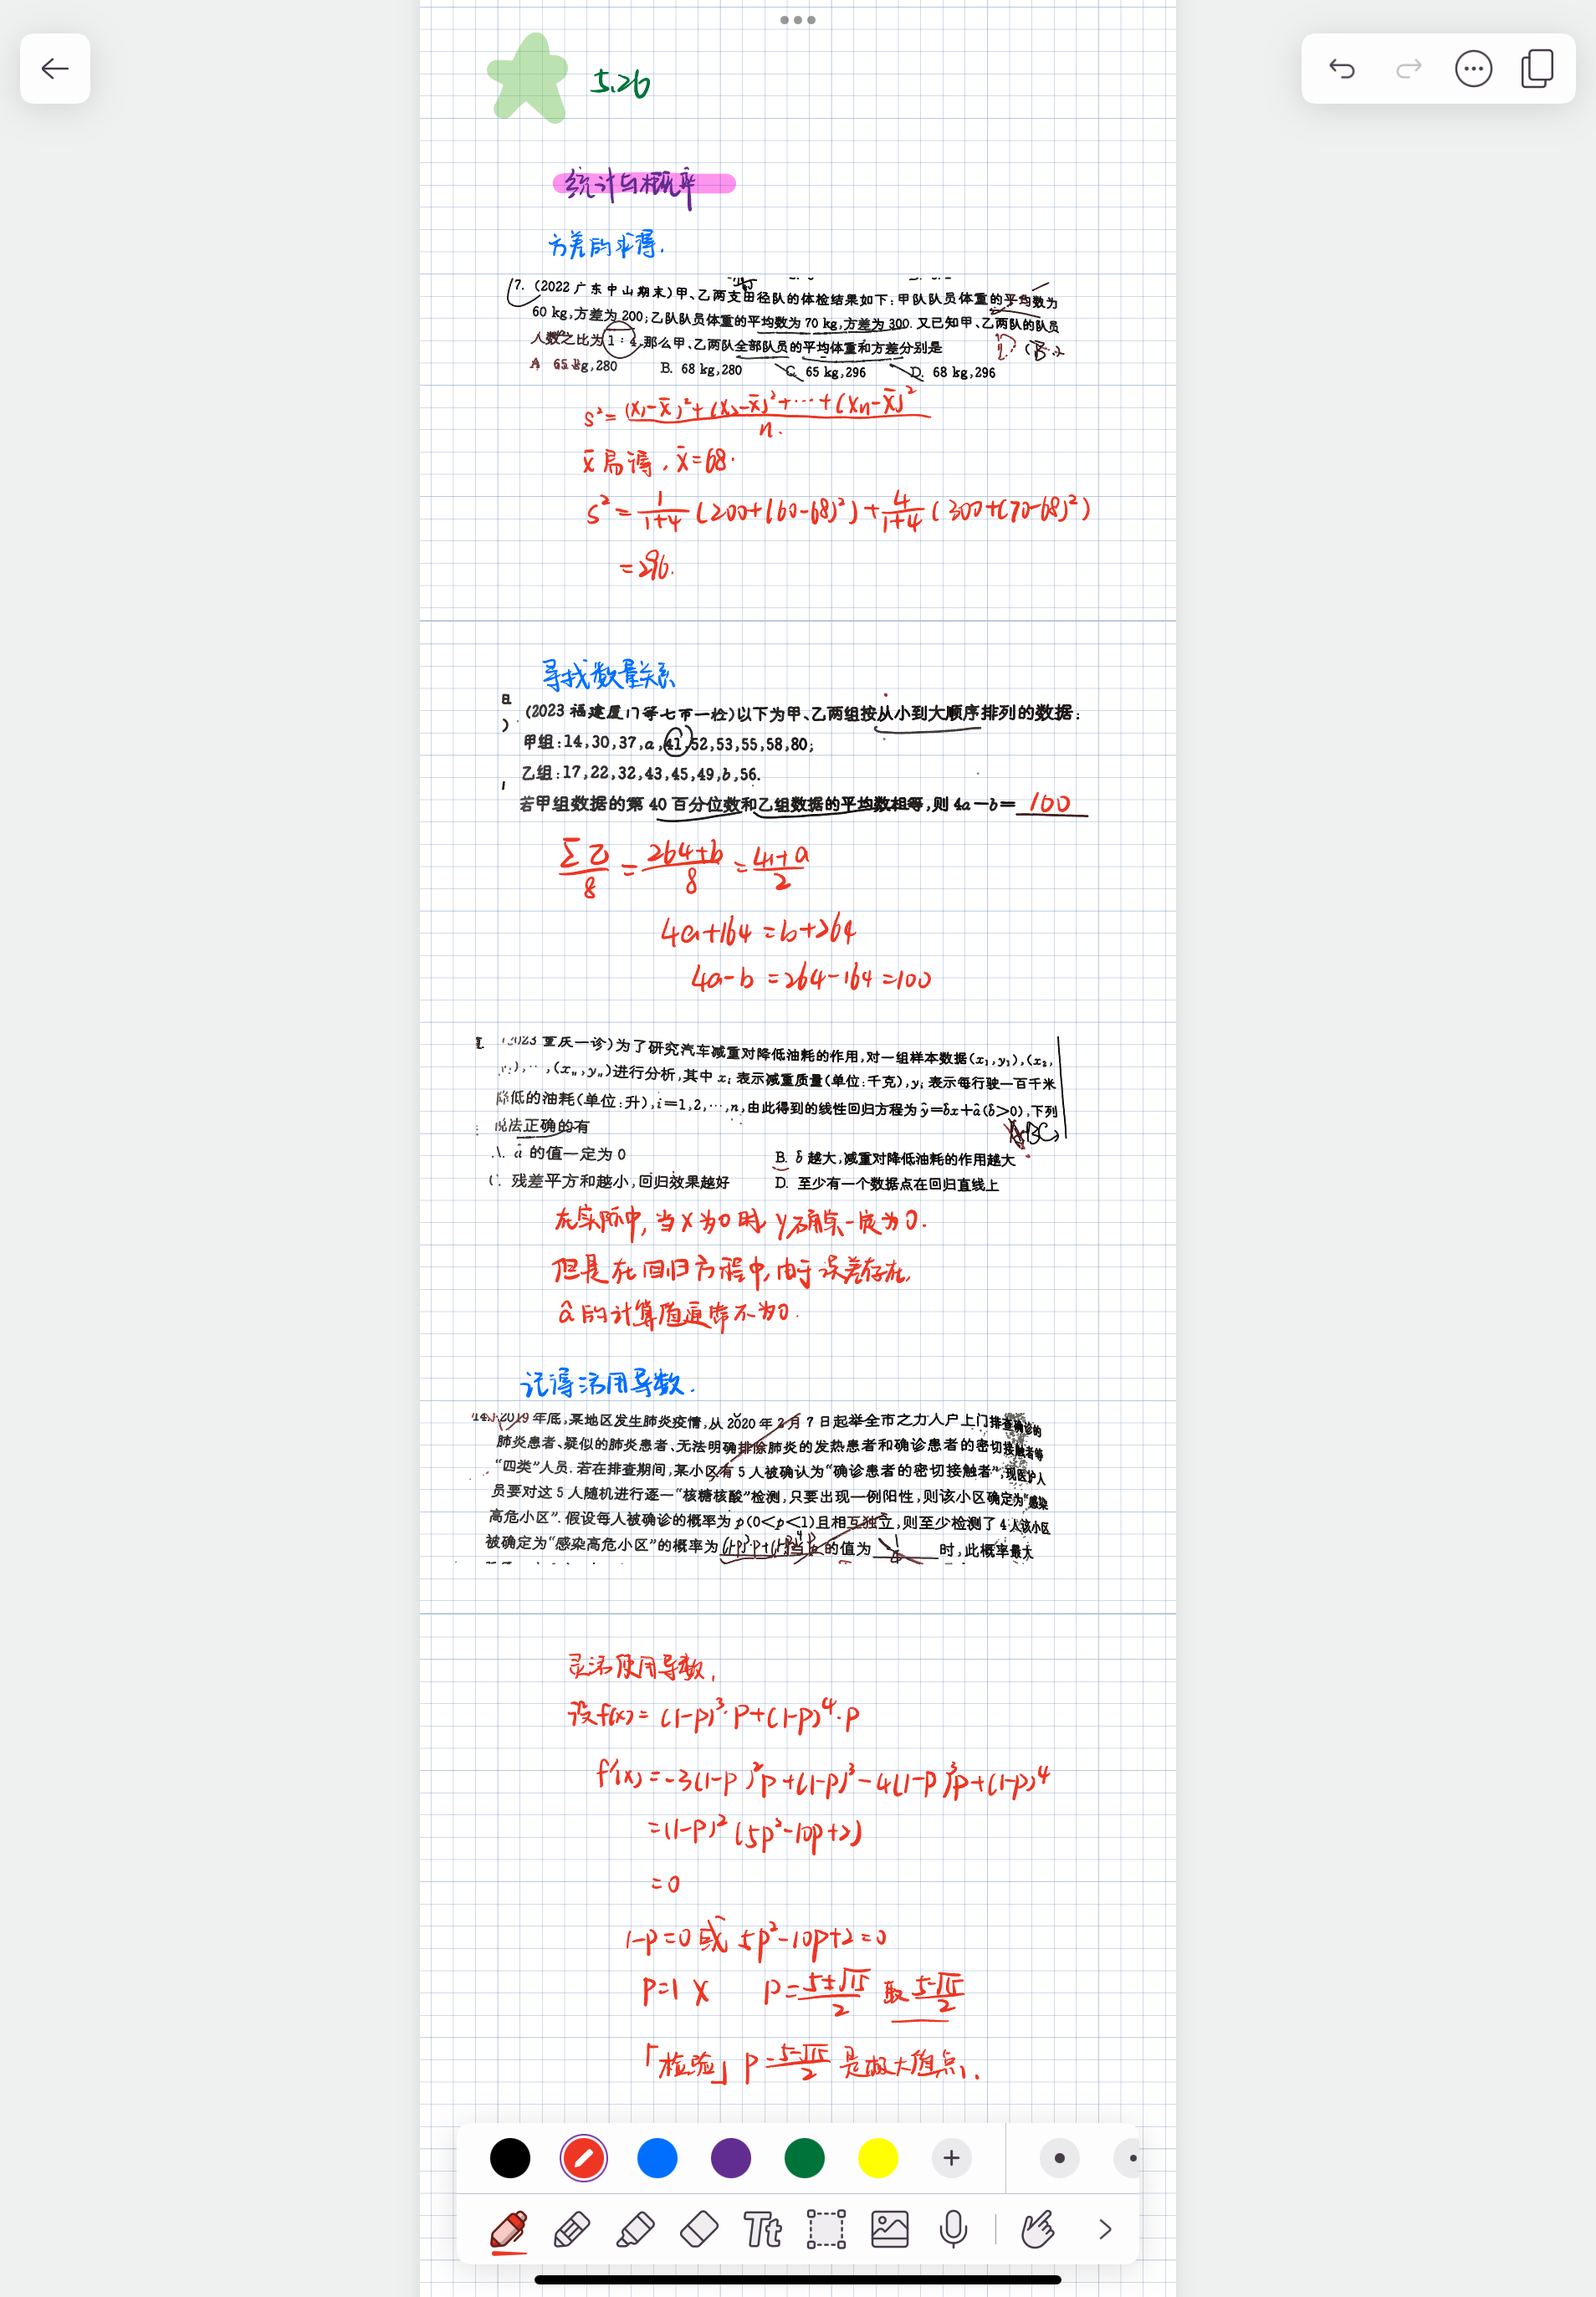 5.26
统计与概率
方差的求得.
7. (2022 广东中山期末)甲、乙两支田径队的体检结果如下:甲队队员体重的平均数为
60 kg,方差为 200;乙队队员体重的平均数为 70 kg,方差为 300. 又已知甲、乙两队的队员
人数之比为 1:4,那么甲、乙两队全部队员的平均体重和方差分别是
A 65 kg,280 B. 68 kg,280 C. 65 kg,296 D. 68 kg,296
s²= (x₁-x̄)²+(x₂-x̄)²+···+(xn-x̄)² / n.
x̄易得, x̄=68.
s²= 1/(1+4) (200+(60-68)²)+ 4/(1+4) (300+(70-68)²)
=296.
寻找数量关系
(2023 福建厦门等七市一检)以下为甲、乙两组按从小到大顺序排列的数据:
甲组:14,30,37,a,41,52,53,55,58,80;
乙组:17,22,32,43,45,49,b,56.
若甲组数据的第 40 百分位数和乙组数据的平均数相等,则 4a-b= 100
Σ乙/8 = (264+b)/8 = (41+a)/2
4a+164=b+264
4a-b=264-164=100
(2023 重庆一诊)为了研究汽车减重对降低油耗的作用,对一组样本数据(x₁,y₁),(x₂,
),···,(xₙ,yₙ)进行分析,其中 xᵢ 表示减重质量(单位:千克),yᵢ 表示每行驶一百千米
降低的油耗(单位:升),i=1,2,···,n,由此得到的线性回归方程为 ŷ=b̂x+â(b̂>0),下列
说法正确的有 BC
A. â 的值一定为 0 B. b̂ 越大,减重对降低油耗的作用越大
C. 残差平方和越小,回归效果越好 D. 至少有一个数据点在回归直线上
在实际中,当x为0时, y确实一定为0.
但是在回归方程中,由于误差存在,
â的计算值通常不为0.
记得活用导数.
14. 2019 年底,某地区发生肺炎疫情,从 2020 年 2 月 7 日起举全市之力入户上门排查确诊的
肺炎患者、疑似的肺炎患者、无法明确排除肺炎的发热患者和确诊患者的密切接触者等
“四类”人员. 若在排查期间,某小区有 5 人被确认为“确诊患者的密切接触者”,现医护人
员要对这 5 人随机进行逐一“核糖核酸”检测,只要出现一例阳性,则该小区确定为“感染
高危小区”. 假设每人被确诊的概率为 p(0<p<1)且相互独立,则至少检测了 4 人该小区
被确定为“感染高危小区”的概率为 (1-p)³p+(1-p)⁴p 当 p 的值为 时,此概率最大
灵活使用导数,
设f(x)= (1-p)³·p+(1-p)⁴·p
f'(x)=-3(1-p)²p+(1-p)³-4(1-p)³p+(1-p)⁴
=(1-p)²(5p²-10p+2)
=0
1-p=0 或 5p²-10p+2=0
p=1 X p= (5±√15)/2 取 (5-√15)/2
「检验」 p= (5-√15)/2 是极大值点,.
Tt